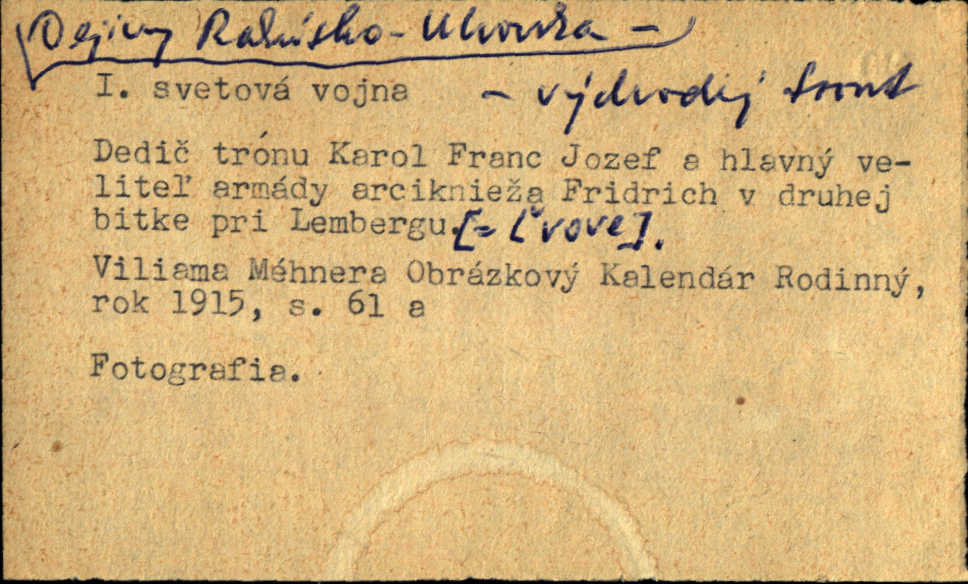 Dejiny Rakúsko-Uhorska -
I. svetová vojna - východný front
Dedič trónu Karol Franc Jozef a hlavný ve-
liteľ armády arciknieža Fridrich v druhej
bitke pri Lembergu.[= Ľvove].
Viliama Méhnera Obrázkový Kalendár Rodinný,
rok 1915, s. 61 a
Fotografia.